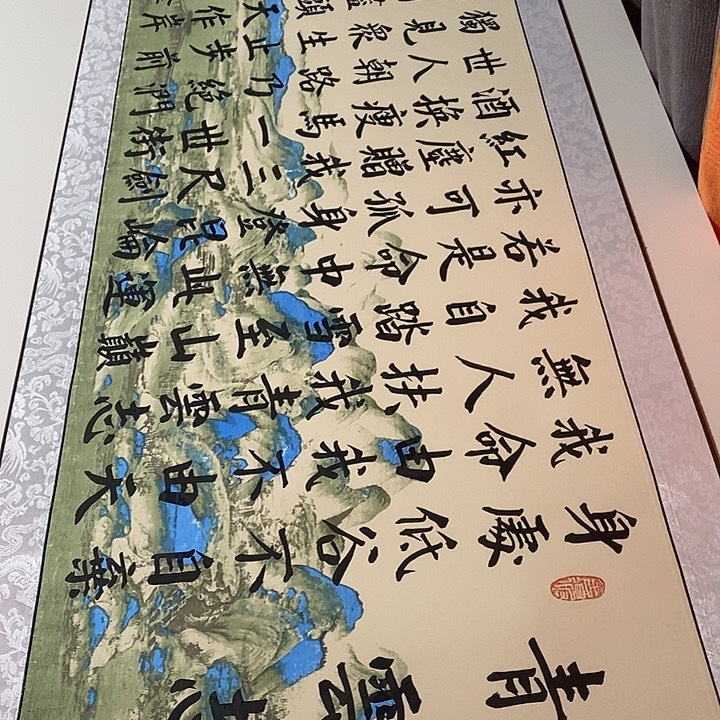 青雲志
身處低谷不自棄
我命由我不由天
無人扶我青雲志
我自踏雪至山巔
若是命中無此運
亦可孤身登昆崙
紅塵贈我三尺劍
酒換瘦馬一世衝
世人朝路乃絕門
獨見眾生止步前
頭天作岸